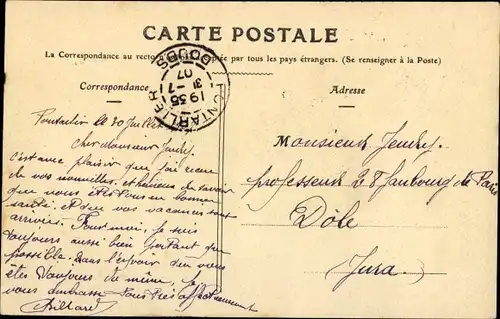 CARTE POSTALE
La Correspondance au recto par tous les pays étrangers. (Se renseigner à la Poste)
Correspondance
Adresse
PONTARLIER
DOUBS
19 35
31 -7
07
Pontarlier le 30 Juillet
Cher Monsieur Jeudy.
plaisir que j'ai reçu
de vos nouvelles. et heureux de savoir
que vous êtes tous en bonne
santé. et que vos vacances sont
arrivées. Pour moi, je suis
toujours aussi bien portant que
possible. dans l'espoir que vous
êtes toujours de même, je
vous embrasse tous très affectueusement
Billard
Monsieur Jeudy.
professeur 28 Faubourg de Paris
Dôle
Jura.